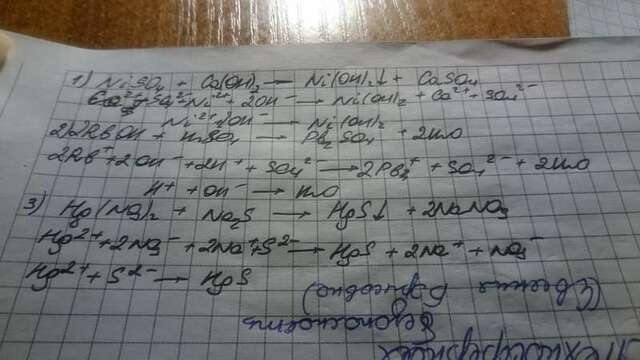 1) NiSO4 + Ca(OH)2 → Ni(OH)2↓ + CaSO4
Ni2+ + 2OH- → Ni(OH)2 + Ca2+ + SO42-
Ni2+ OH- → Ni(OH)2
2) 2RbOH + H2SO4 → Rb2SO4 + 2H2O
2Rb+ + 2OH- + 2H+ + SO42- → 2Rb+ + SO42- + 2H2O
H+ + OH- → H2O
3) Hg(NO3)2 + Na2S → HgS↓ + 2NaNO3
Hg2+ + 2NO3- + 2Na+ + S2- → HgS + 2Na+ + NO3-
Hg2+ + S2- → HgS
безопасность